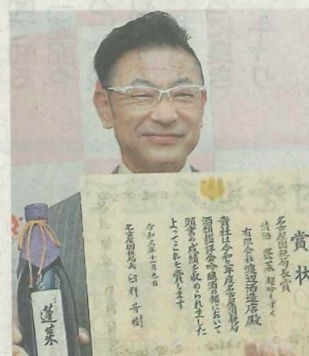 賞状
名古屋国税局長賞
清酒 蓬莱 超吟しずく
有限会社渡辺酒造店殿
貴社は令和元年度名古屋国税局
酒類鑑評会吟醸酒の部において
頭書の成績を収められました
よってこれを賞します
令和元年十一月
名古屋国税局長
蓬莱